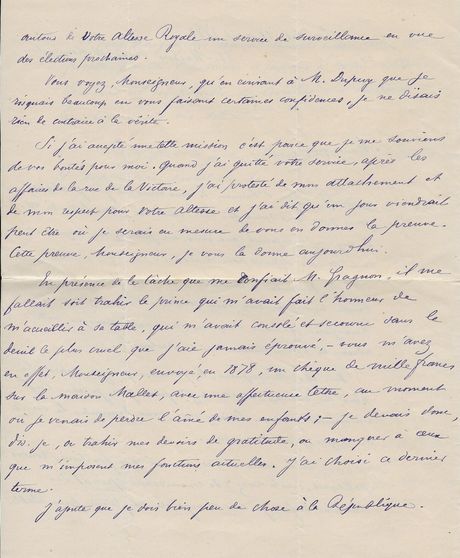 autour de Votre Altesse Royale un service de surveillance en vue
des élections prochaines.
Vous voyez, Monseigneur, qu'en écrivant à M. Dupuy que je
risquais beaucoup en vous faisant certaines confidences, je ne disais
rien de contraire à la vérité.
Si j'ai accepté une telle mission c'est parce que je me souviens
de vos bontés pour moi. Quand j'ai quitté votre service, après les
affaires de la rue de la Victoire, j'ai protesté de mon attachement et
de mon respect pour Votre Altesse et j'ai dit qu'un jour viendrait
peut être où je serais en mesure de vous en donner la preuve.
Cette preuve, Monseigneur, je vous la donne aujourd'hui.
En présence de la tâche que me confiait M. Gragnon, il me
fallait soit trahir le prince qui m'avait fait l'honneur de
m'accueillir à sa table, qui m'avait consolé et secouru dans le
deuil le plus cruel que j'aie jamais éprouvé, – vous m'avez
en effet, Monseigneur, envoyé, en 1878, un chèque de mille francs
sur la maison Mallet, avec une affectueuse lettre, au moment
où je venais de perdre l'aîné de mes enfants; – je devais donc,
dis-je, ou trahir mes devoirs de gratitude, ou manquer à ceux
que m'imposent mes fonctions actuelles. J'ai choisi ce dernier
terme.
J'ajoute que je dois bien peu de chose à la République.